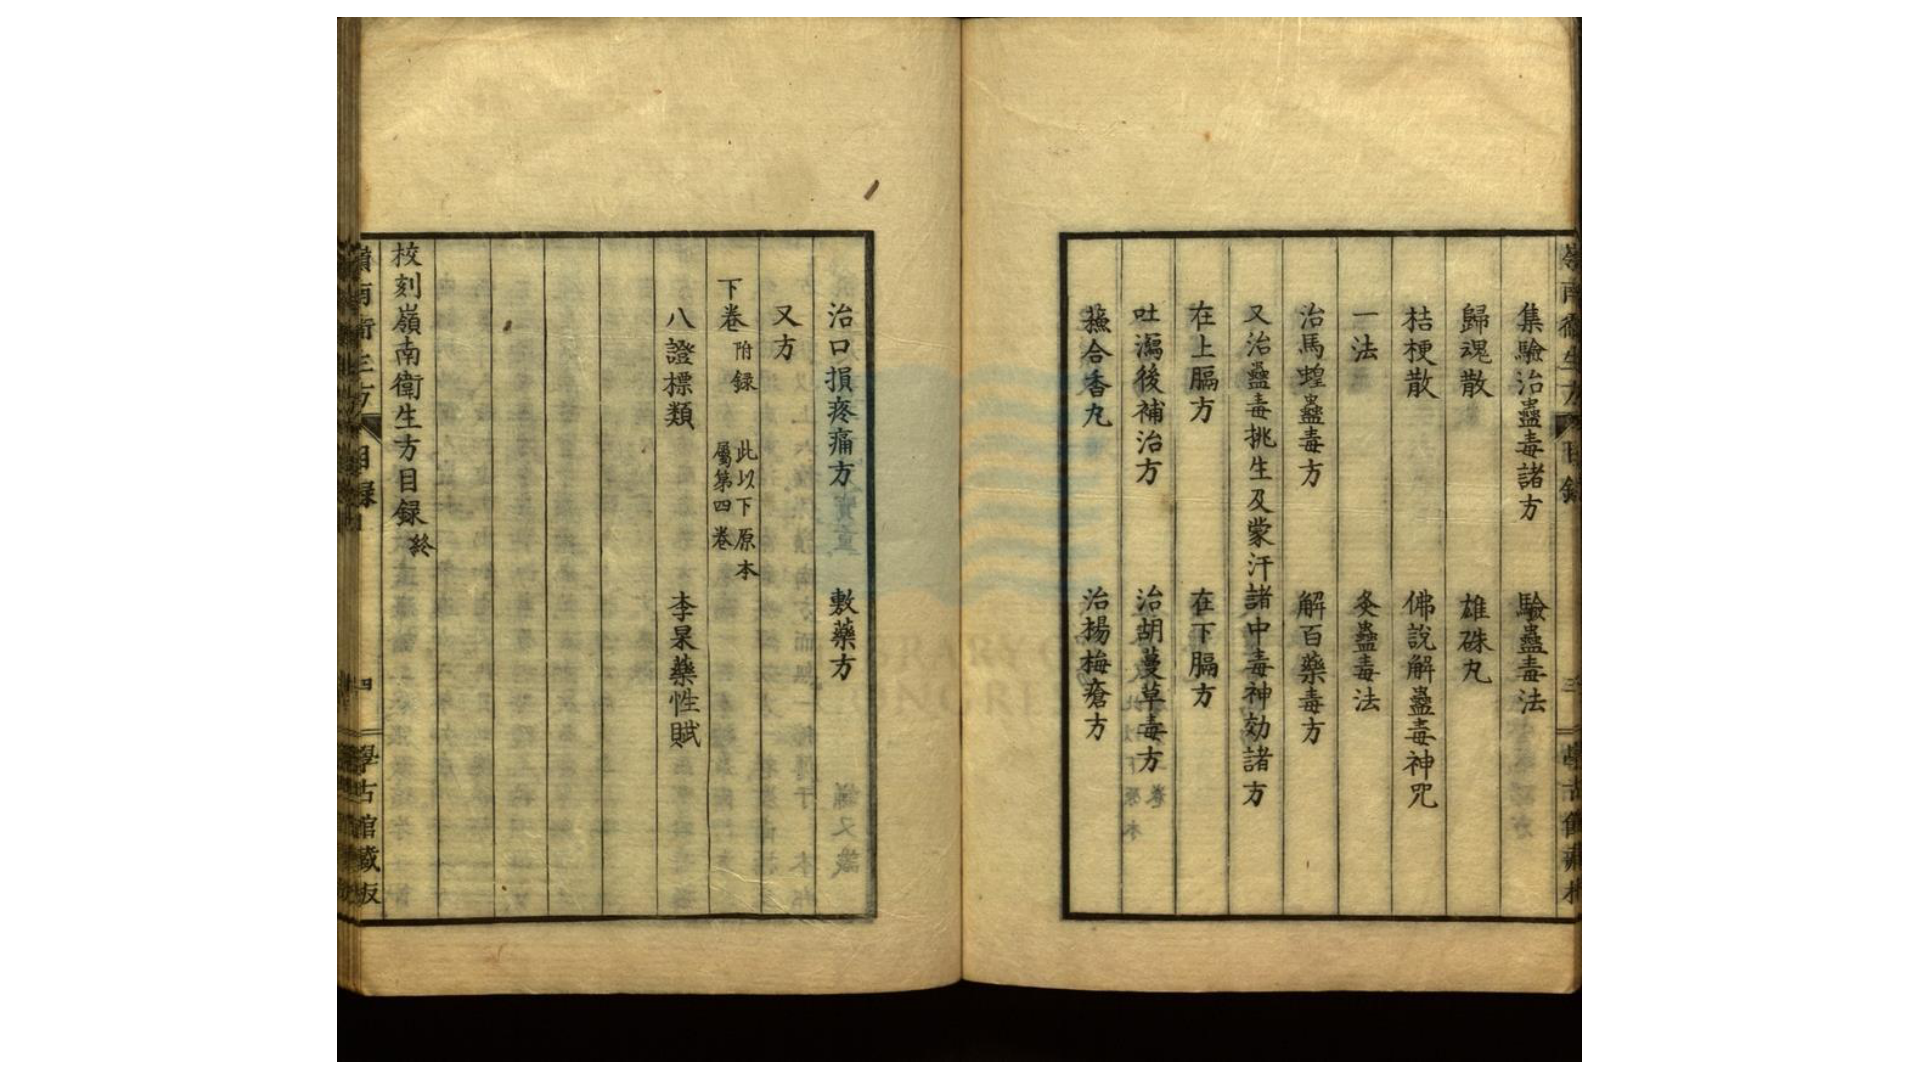 集驗治蠱毒諸方 驗蠱毒法
歸魂散 雄硃丸
桔梗散 佛說解蠱毒神咒
一法 灸蠱毒法
治馬蝗蠱毒方 解百藥毒方
又治蠱毒挑生及蒙汗諸中毒神効諸方
在上膈方 在下膈方
吐瀉後補治方 治胡蔓草毒方
蘓合香丸 治揚梅瘡方
治口損疼痛方 敷藥方
又方
下卷 附録 此以下原本
屬第四卷
八證標類 李杲藥性賦
校刻嶺南衛生方目録 終
嶺南衛生方 目録 四 學古館藏版